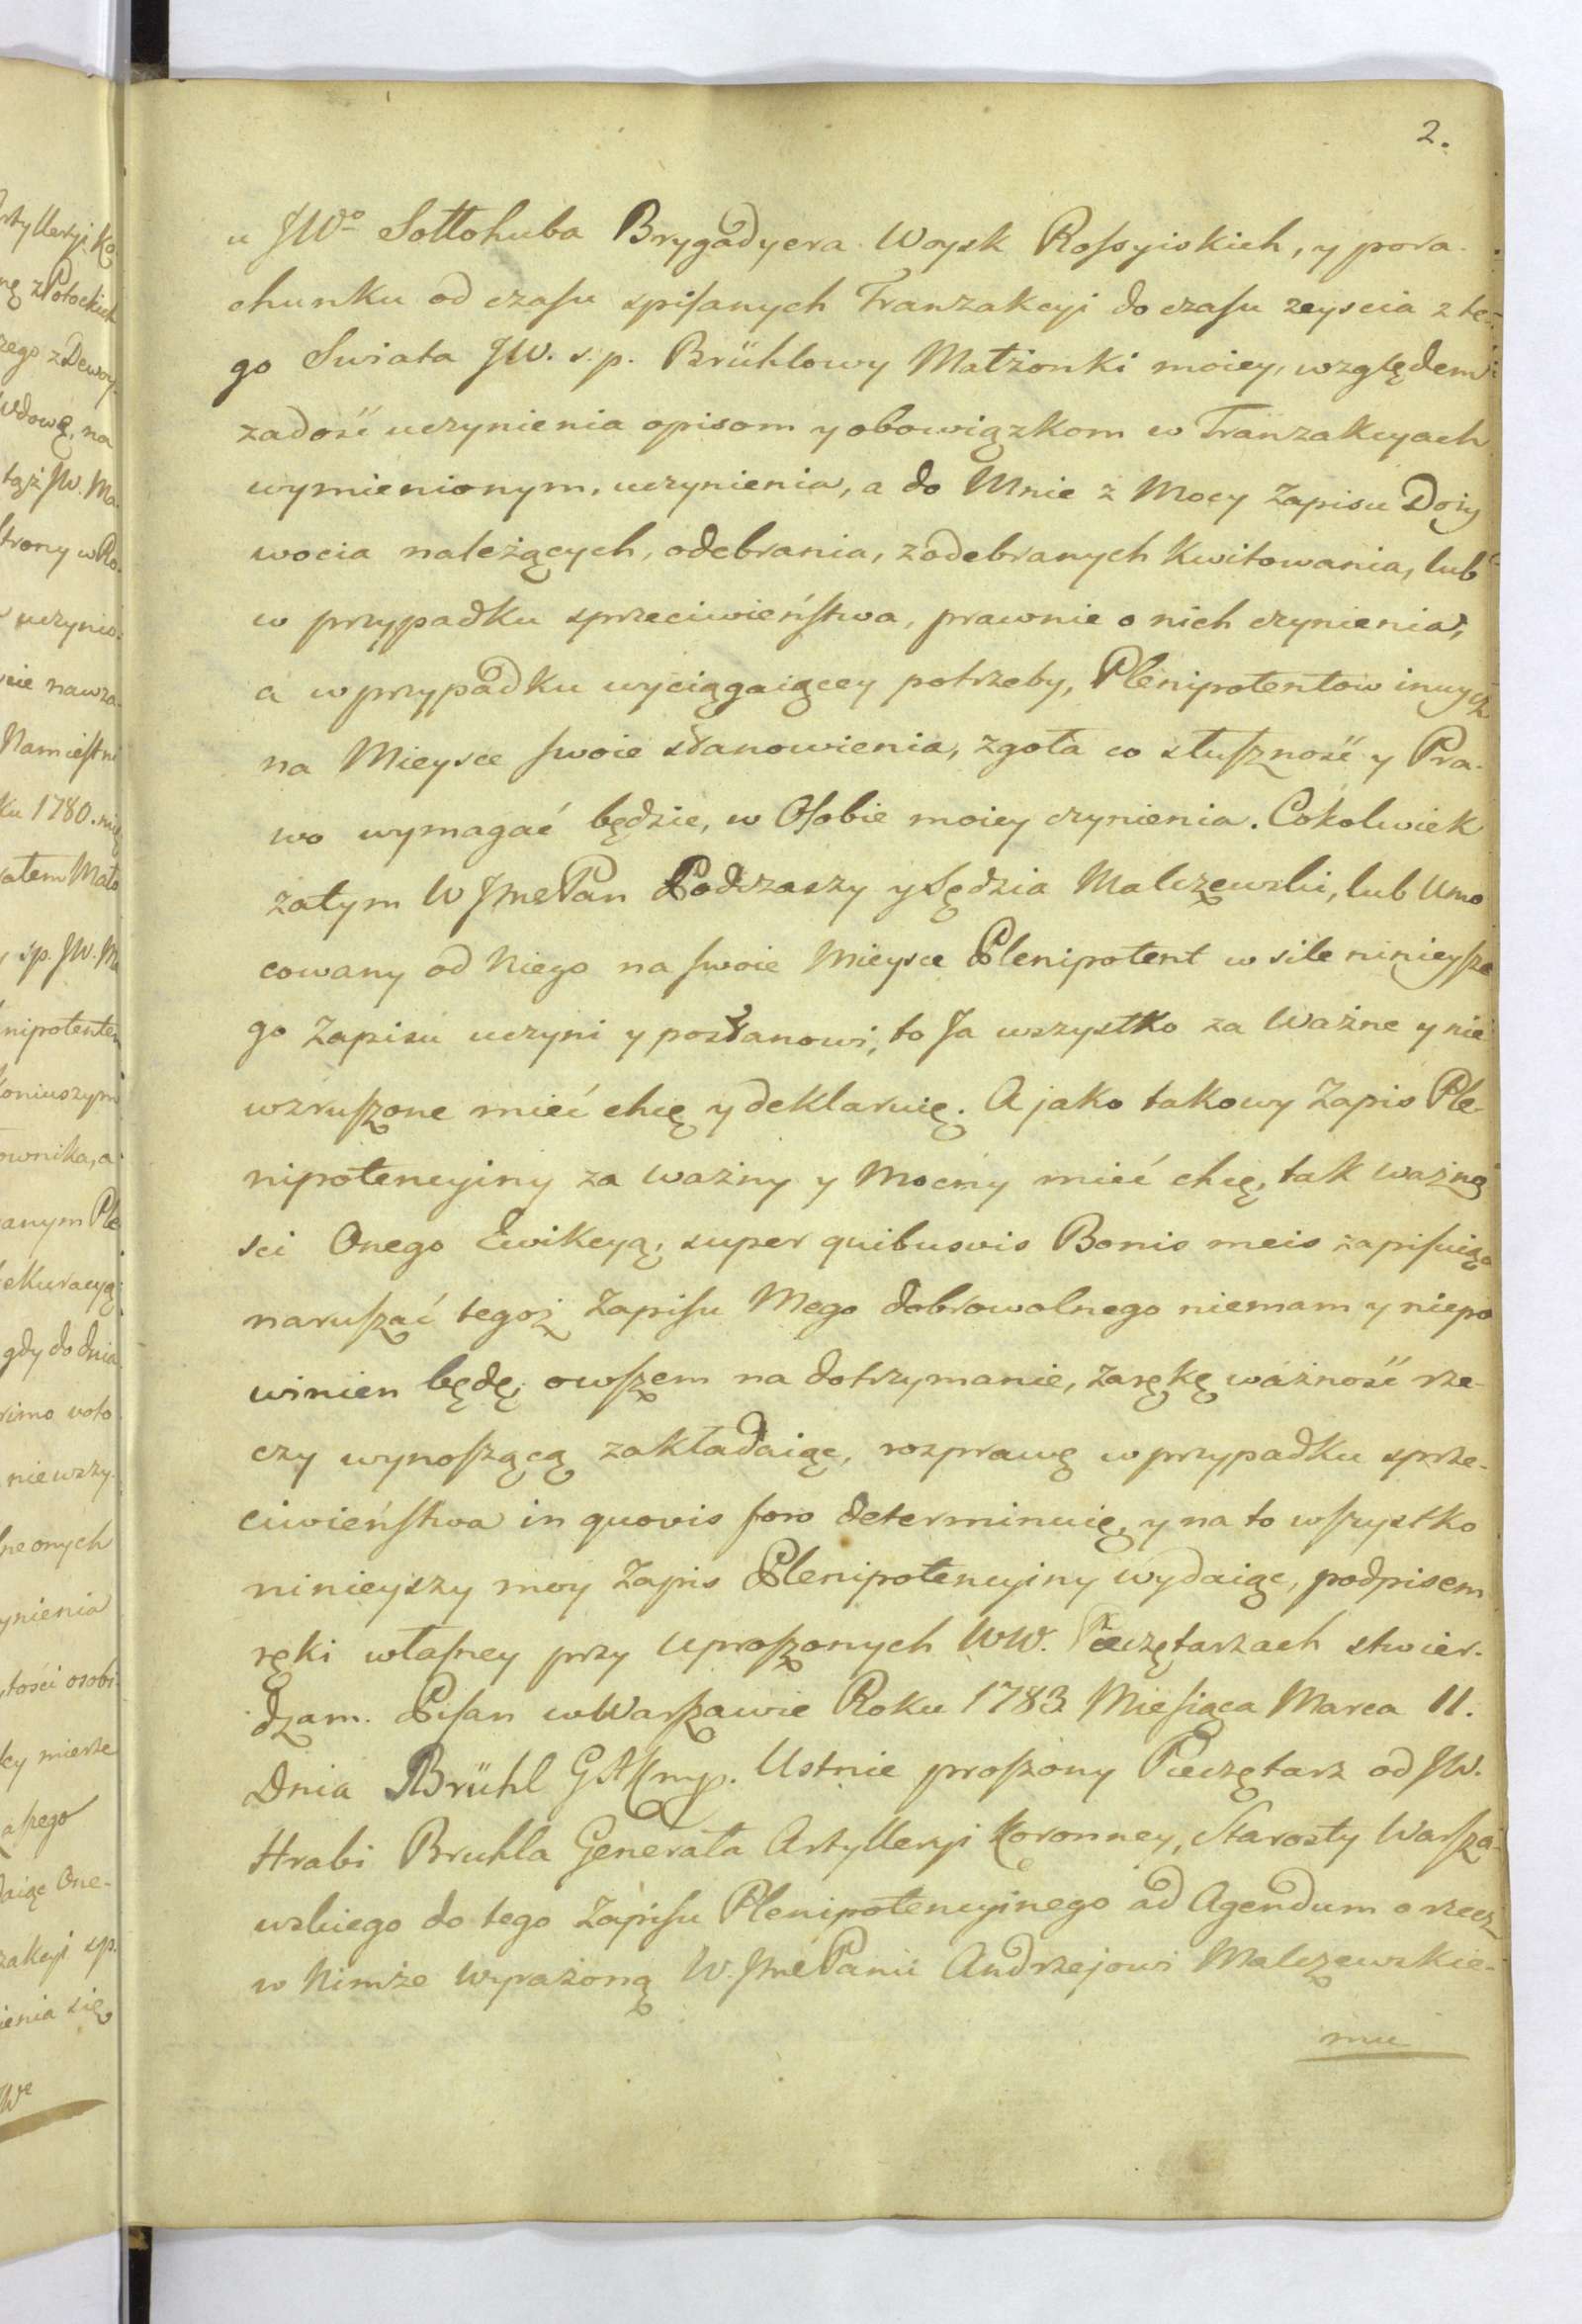 2.
u JWo Sołłohuba Brygadyera Woysk Rossyiskich, y pora-
chunku od czasu spisanych Tranzakcyi do czasu zeyscia z te-
go Swiata JW. s. p. Brühlowy Małżonki moiey, względem
zadość uczynienia opisom y obowiązkom w Tranzakcyach
wymienionym, uczynienia, a do Mnie z Mocy Zapisu Doży
wocia należących, odebrania, z odebranych Kwitowania, lub
w przypadku sprzeciwieństwa, prawnie o nich czynienia,
a w przypadku wyciągaiącey potrzeby, Plenipotentow innych
na Mieysce swoie stanowienia, zgoła co słuszność y Pra-
wo wymagać będzie, w Osobie moiey czynienia. Cokolwiek
zatym W JmcPan Podczaszy y Sędzia Malczewski, lub Umo
cowany od Niego na swoie Mieysce Plenipotent w sile ninieysze
go Zapisu uczyni y postanowi, to Ja wszystko za Ważne y nie
wzruszone mieć chcę y deklaruię. A jako takowy Zapis Ple-
nipotencyiny za ważny y Mocny mieć chcę, tak ważno
sci Onego Ewikcyą, super quibusvis Bonis meis zapisuiąc
naruszać tegoż Zapisu Mego dobrowolnego niemam y niepo
winien będę, owszem na dotrzymanie, zarękę ważność rze-
czy wynoszącą zakładaiąc, rozprawę w przypadku sprze-
ciwieństwa in quovis foro determinuię, y na to wszystko
ninieyszy moy Zapis Plenipotencyiny wydaiąc, podpisem
ręki własney przy uproszonych WW. Pieczętarzach stwier-
dzam. Pisan w Warszawie Roku 1783 Miesiąca Marca 11.
Dnia Brühl GAKmp. Ustnie proszony Pieczętarz od JW.
Hrabi Bruhla Generała Artylleryi Koronney, Starosty Warsza-
wskiego do tego Zapisu Plenipotencyinego ad Agendum o rzecz
w Nimże wyrażoną W. JmćPanu Andrzejowi Malczewskie-
mu